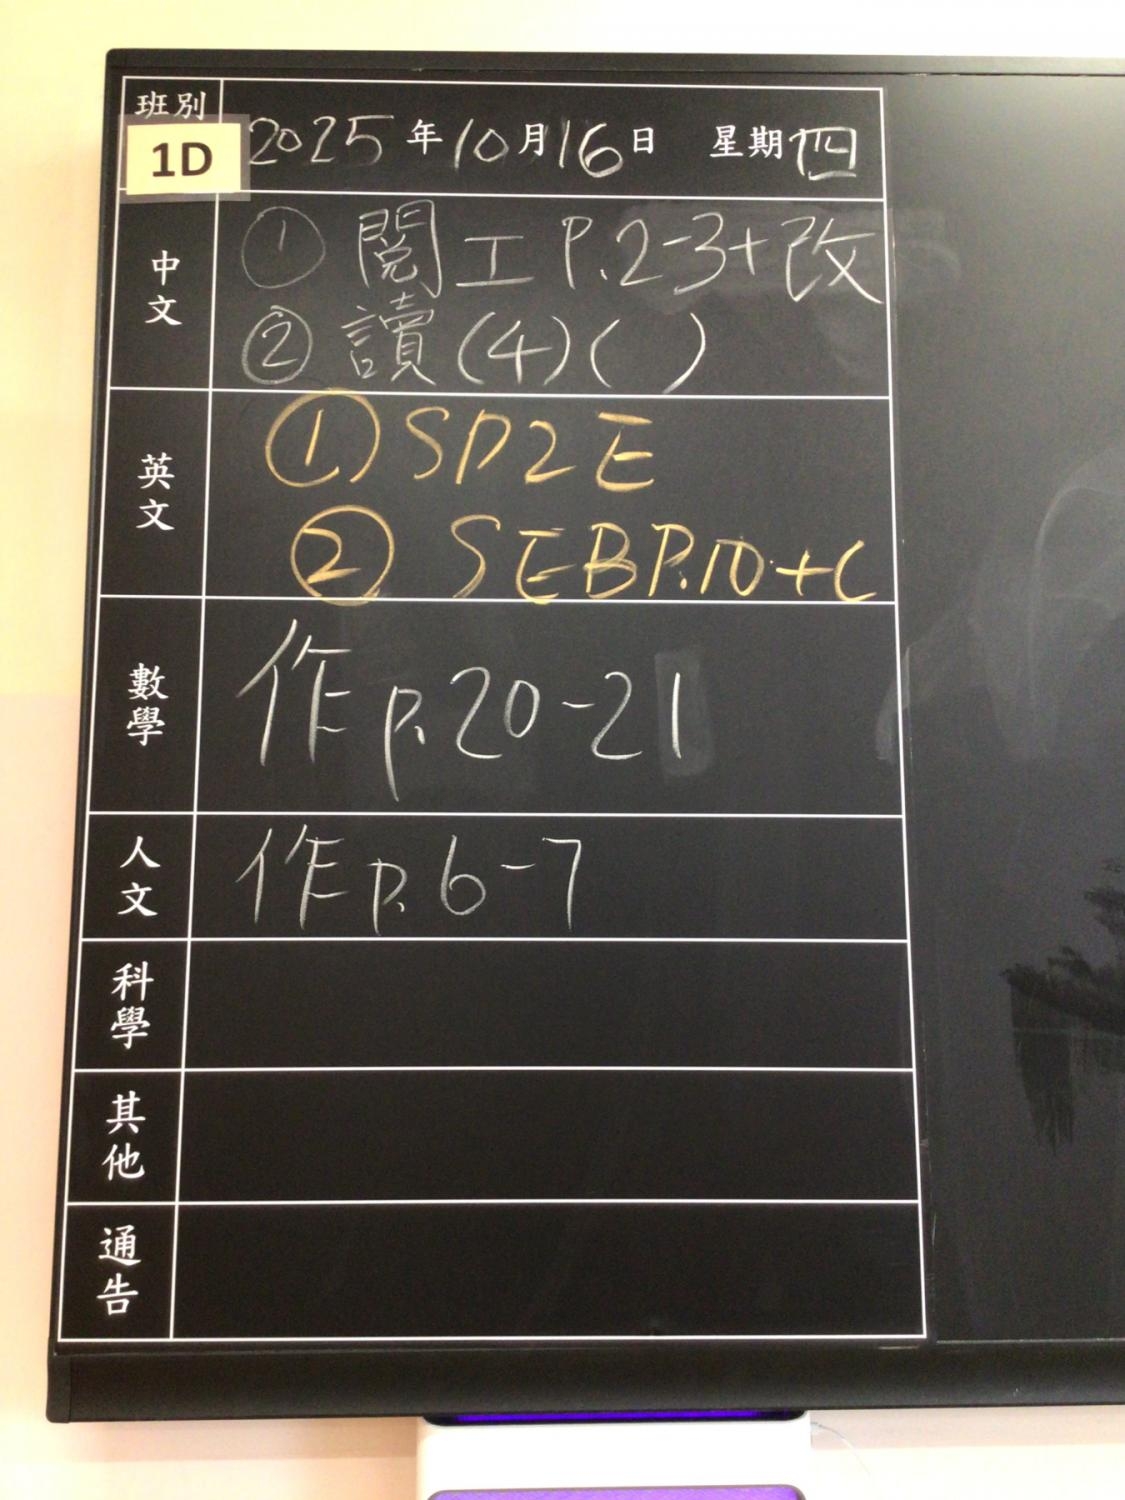 班別
1D
2025年10月16日 星期四
中文
① 閱工 P.2-3+改
② 讀(4)( )
英文
① SD2E
② SEB P.10+C
數學
作 p.20-21
人文
作 p.6-7
科學
其他
通告